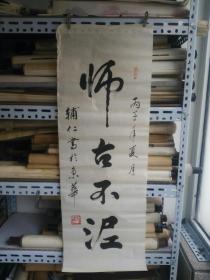 师古不泥
丙子年夏月
辅仁书于京华